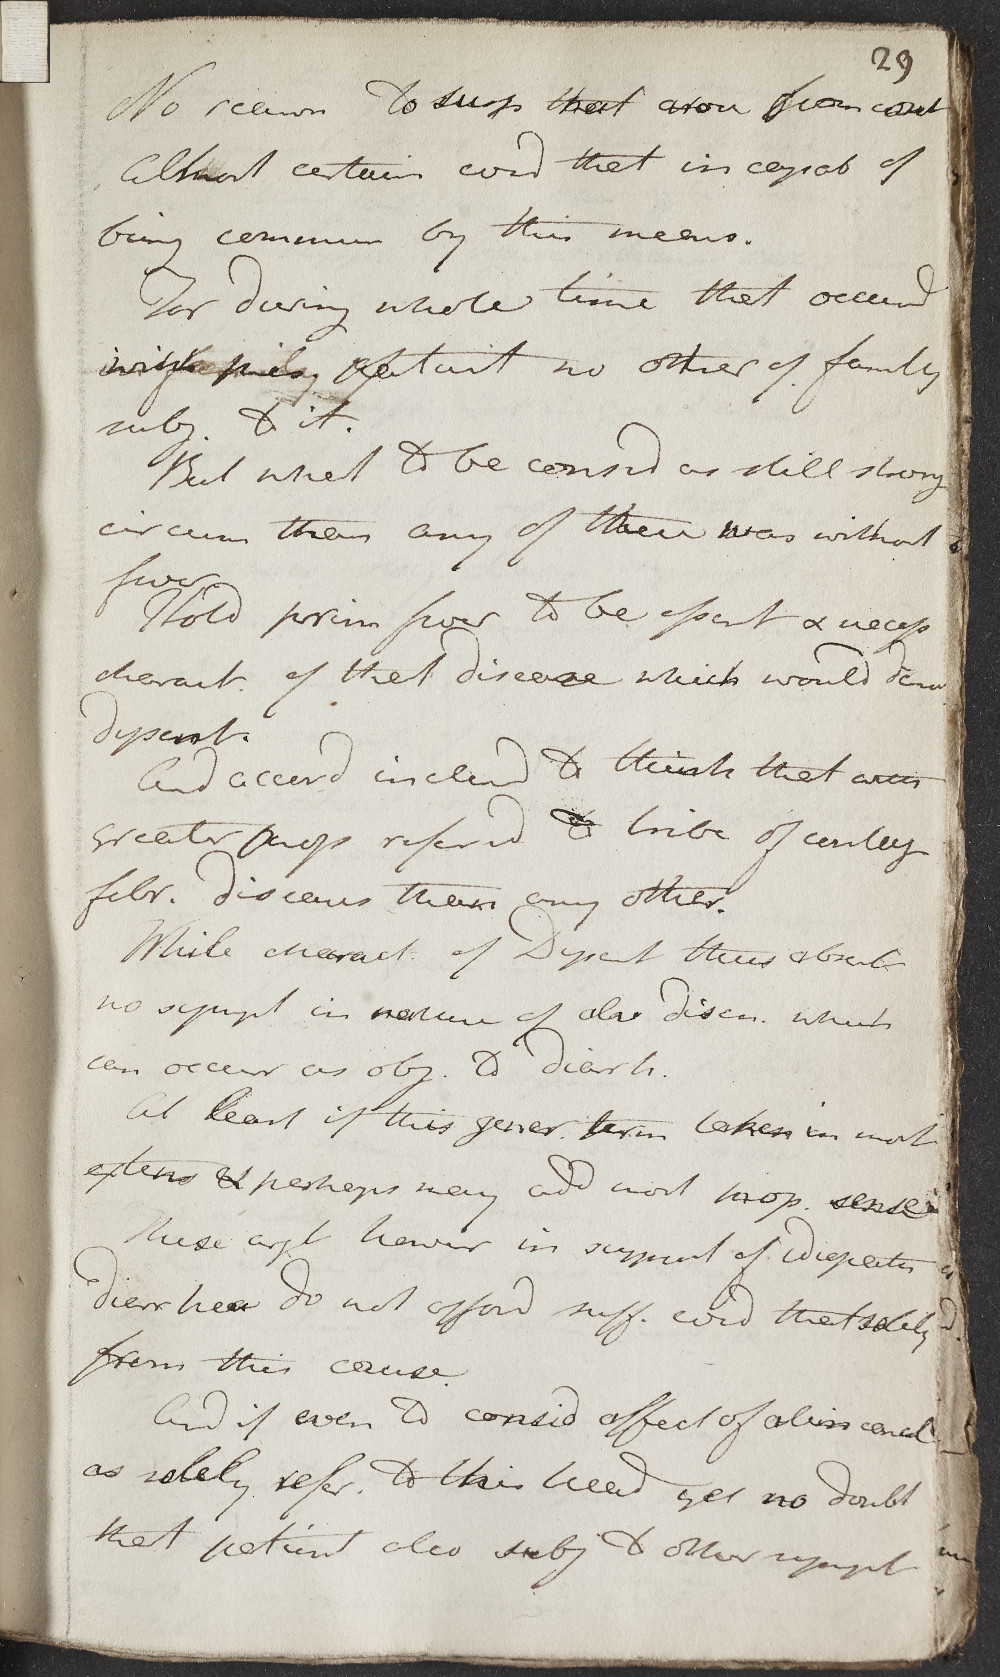 29
No reason to susp that arose from cont
Almost certain cond that incapab of
being commun by this means.
For during whole time that occurrd
with patient no other of family
subj. to it.
But what to be consrd as still strong
circum than any of these was without
fever.
Hold prim fever to be essent & necess
charact. of that disease which would denom
dysent.
And accord inclind to think that with
greater prop referrd to tribe of
febr. diseases than any other.
While charact. of Dysent thus absent
no sympt in nature of alv disch. which
can occur as obj. to Diarrh.
At least if this gener. term taken in most
extens & perhaps may add most prop. sense
These argt howvr in support of idiopath
Diarrhea do not afford suff. cond that solely
from this cause.
And if even to consid affect of alim canal
as solely refer. to this head yet no doubt
that patient also subj to other sympt